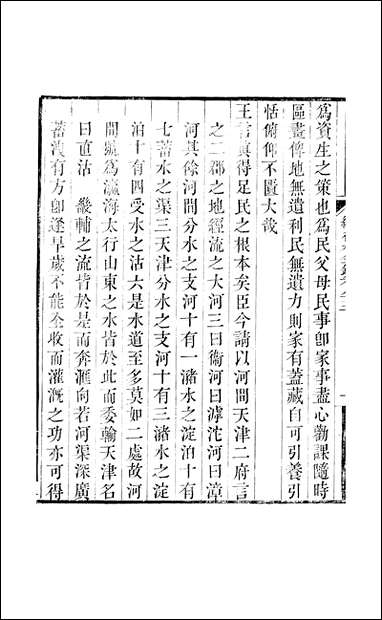 爲資生之策也爲民父母民事卽家事盡心勸課隨時
區畫俾地無遺利民無遺力則家有蓋藏自可引養引
恬俯仰不匱大哉
王言眞得足民之根本矣臣今請以河間天津二府言
之二郡之地經流之大河三曰衞河曰滹沱河曰漳
河其餘河間分水之支河十有一瀦水之淀泊十有
七蓄水之渠三天津分水之支河十有三瀦水之淀
泊十有四受水之沽六是水道至多莫如二處故河
間號爲瀛海太行山東之水皆於此而委輸天津名
曰直沽　畿輔之流皆於是而奔滙向若河渠深廣
蓄洩有方卽逢旱歲不能全收而灌漑之功亦可得